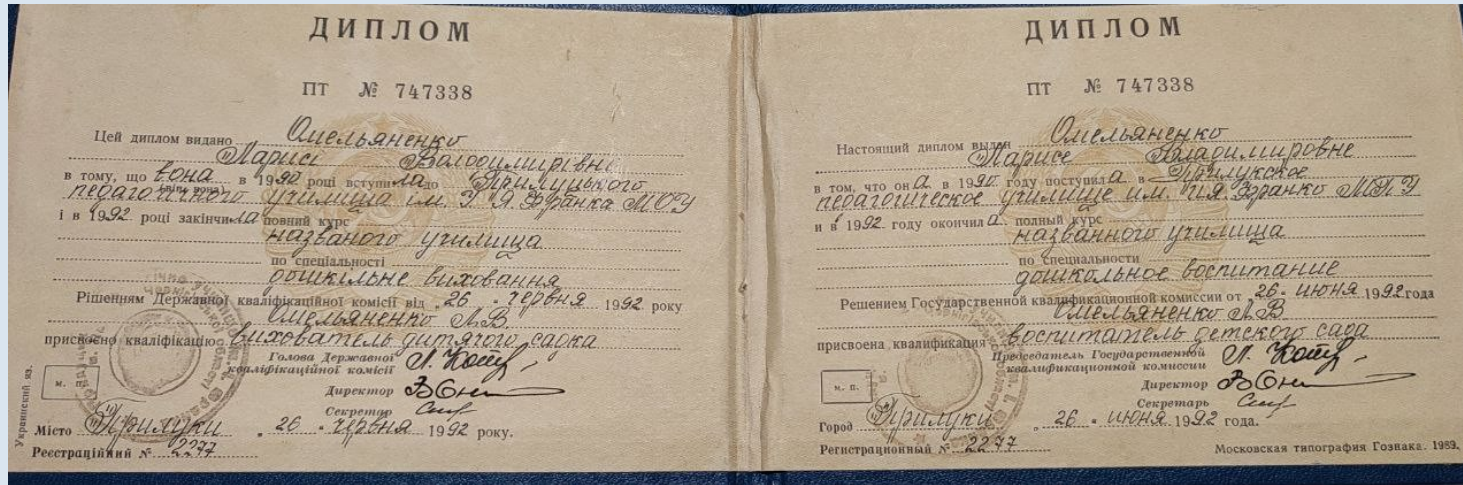 ДИПЛОМ
ПТ № 747338
Цей диплом видано Омельяненко
Ларисі Володимирівні
в тому, що вона в 1990 році вступила до Прилуцького
(він, вона)
педагогічного училища ім. І. Я. Франка МОУ
і в 1992 році закінчила повний курс
названого училища
по спеціальності
дошкільне виховання
Рішенням Державної кваліфікаційної комісії від „26 " червня 1992 року
Омельяненко Л.В.
присвоєно кваліфікацію вихователь дитячого садка
Голова Державної
кваліфікаційної комісії
Директор
Секретар
м.
Місто Прилуки „ 26 " червня 1992 року.
Реєстраційний № 2277
Украинский яз.
ДИПЛОМ
ПТ № 747338
Настоящий диплом выдан Омельяненко
Ларисе Владимировне
в том, что она в 1990 году поступила в Прилукское
педагогическое училище им. И.Я. Франко
и в 1992 году окончила полный курс
названного училища
по специальности
дошкольное воспитание
Решением Государственной квалификационной комиссии от „26" июня 1992 года
Омельяненко Л.В
присвоена квалификация воспитатель детского сада
Председатель Государственной
квалификационной комиссии
Директор
Секретарь
м. п.
Город Прилуки „ 26 " июня 1992 года.
Регистрационный № 2277
Московская типография Гознака. 1989.